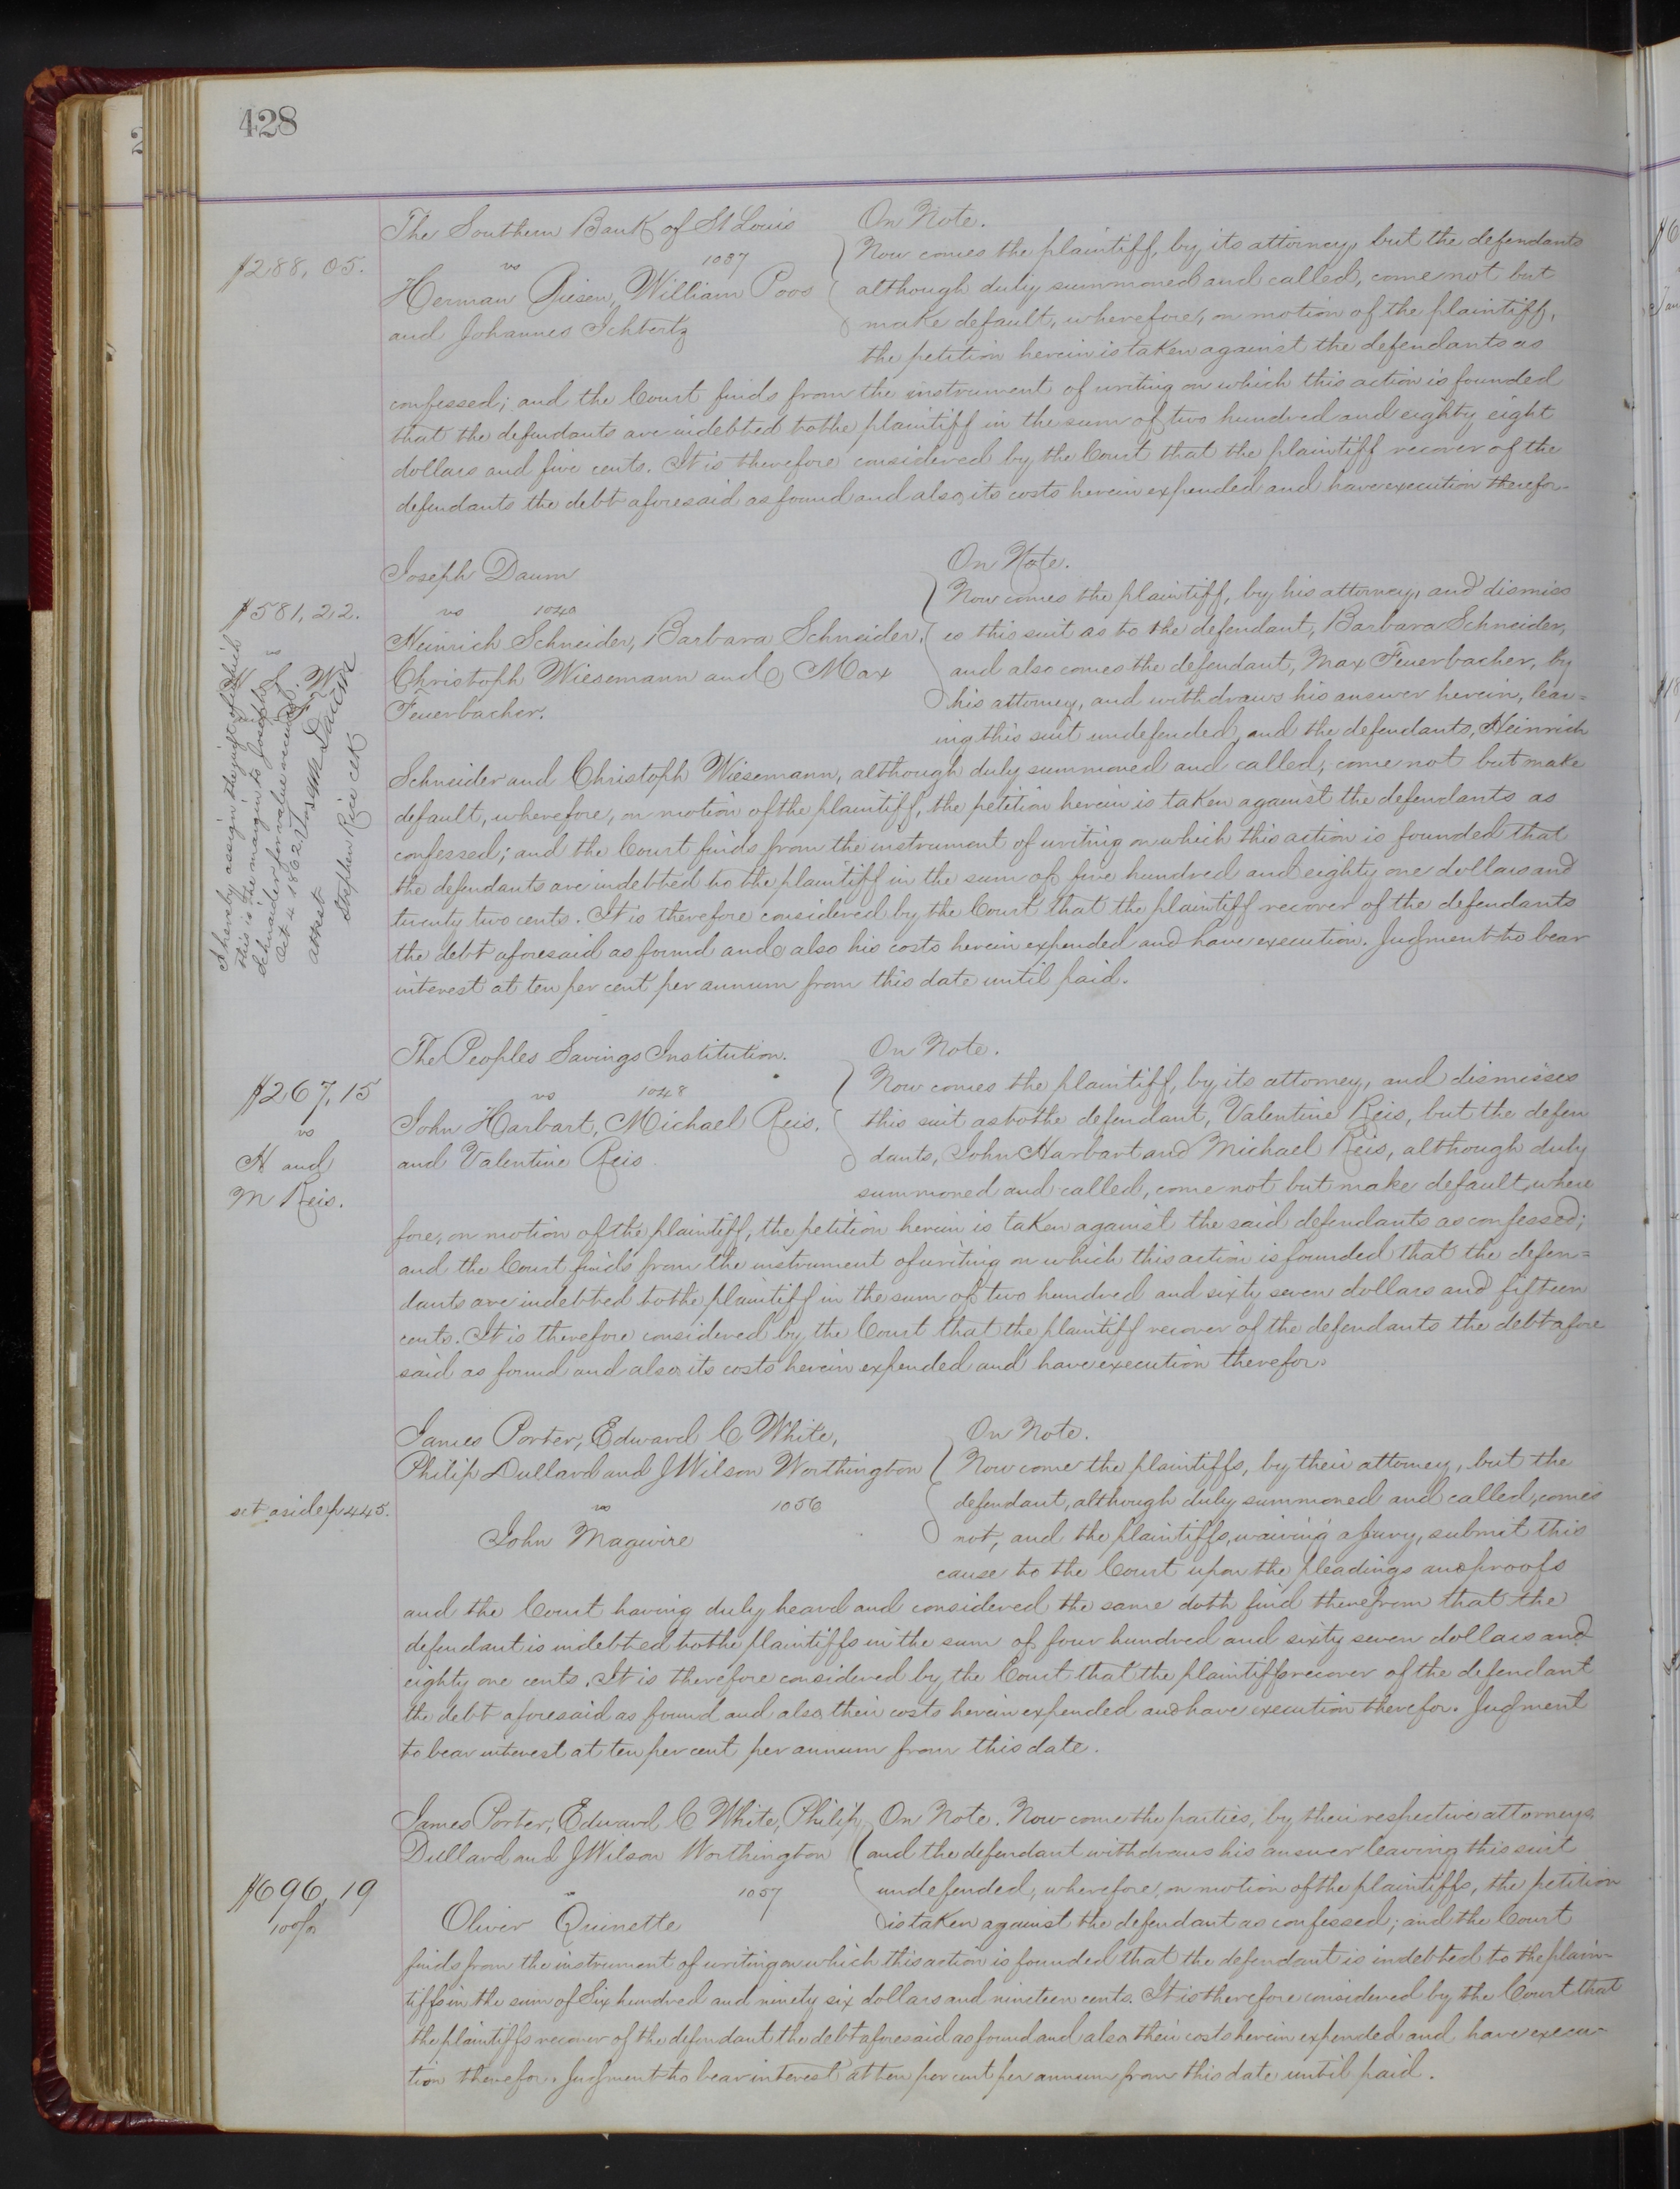 428
The Southern Bank of St Louis
vs 1087
Herman Giesen, William Poos
and Johannes Schbertz
$288,05.
On Note.
Now comes the plaintiff, by its attorney, but the defendants
although duly summoned and called, come not but
make default, wherefore, on motion of the plaintiff,
the petition herein is taken against the defendants as
confessed; and the Court finds from the instrument of writing on which this action is founded
that the defendants are indebted to the plaintiff in the sum of two hundred and eighty eight
dollars and five cents. It is therefore considered by the Court that the plaintiff recover of the
defendants the debt aforesaid as found and also its costs herein expended and have execution therefor.
Joseph Daum
vs 1040
Heinrich Schneider, Barbara Schneider,
Christoph Wiesemann and Max
Feuerbacher.
$581,22.
vs
I hereby assign the judgt of which
this is the margin to Joseph
Schnaider for value received.
Oct 4 1862 Joseph Daum
attest
Stephen Rice clk
On Note.
Now comes the plaintiff, by his attorney, and dismiss
es this suit as to the defendant, Barbara Schneider,
and also comes the defendant, Max Feuerbacher, by
his attorney, and withdraws his answer herein, leav=
ing this suit undefended, and the defendants, Heinrich
Schneider and Christoph Wiesemann, although duly summoned and called, come not but make
default, wherefore, on motion of the plaintiff, the petition herein is taken against the defendants as
confessed; and the Court finds from the instrument of writing on which this action is founded that
the defendants are indebted to the plaintiff in the sum of five hundred and eighty one dollars and
twenty two cents. It is therefore considered by the Court that the plaintiff recover of the defendants
the debt aforesaid as found and also his costs herein expended and have execution. Judgment to bear
interest at ten per cent per annum from this date until paid.
The Peoples Savings Institution.
vs 1048
John Harbart, Michael Reis,
and Valentine Reis.
$267,15
vs
H and
M Reis.
On Note.
Now comes the plaintiff, by its attorney, and dismisses
this suit as to the defendant, Valentine Reis, but the defen
dants, John Harbart and Michael Reis, although duly
summoned and called, come not but make default, where
fore, on motion of the plaintiff, the petition herein is taken against the said defendants as confessed;
and the Court finds from the instrument of writing on which this action is founded that the defen=
dants are indebted to the plaintiff in the sum of two hundred and sixty seven dollars and fifteen
cents. It is therefore considered by the Court that the plaintiff recover of the defendants the debt afore
said as found and also its costs herein expended and have execution therefor.
James Porter, Edward C White,
Philip Dullard and J Wilson Worthington
vs 1056
John Maguire
set aside p 445.
On Note.
Now come the plaintiffs, by their attorney, but the
defendant, although duly summoned and called, comes
not, and the plaintiffs, waiving a jury, submit this
cause to the Court upon the pleadings and proofs
and the Court having duly heard and considered the same doth find therefrom that the
defendant is indebted to the plaintiffs in the sum of four hundred and sixty seven dollars and
eighty one cents. It is therefore considered by the Court that the plaintiffs recover of the defendant
the debt aforesaid as found and also their costs herein expended and have execution therefor. Judgment
to bear interest at ten per cent per annum from this date.
James Porter, Edward C White, Philip
Dullard and J Wilson Worthington
vs 1057
Oliver Quinette
$696,19
On Note. Now come the parties, by their respective attorneys,
and the defendant withdraws his answer leaving this suit
undefended, wherefore, on motion of the plaintiffs, the petition
is taken against the defendant as confessed; and the Court
finds from the instrument of writing on which this action is founded that the defendant is indebted to the plain=
tiffs in the sum of Six hundred and ninety six dollars and nineteen cents. It is therefore considered by the Court that
the plaintiffs recover of the defendant the debt aforesaid as found and also their costs herein expended and have execu-
tion therefor. Judgment to bear interest at ten per cent per annum from this date until paid.